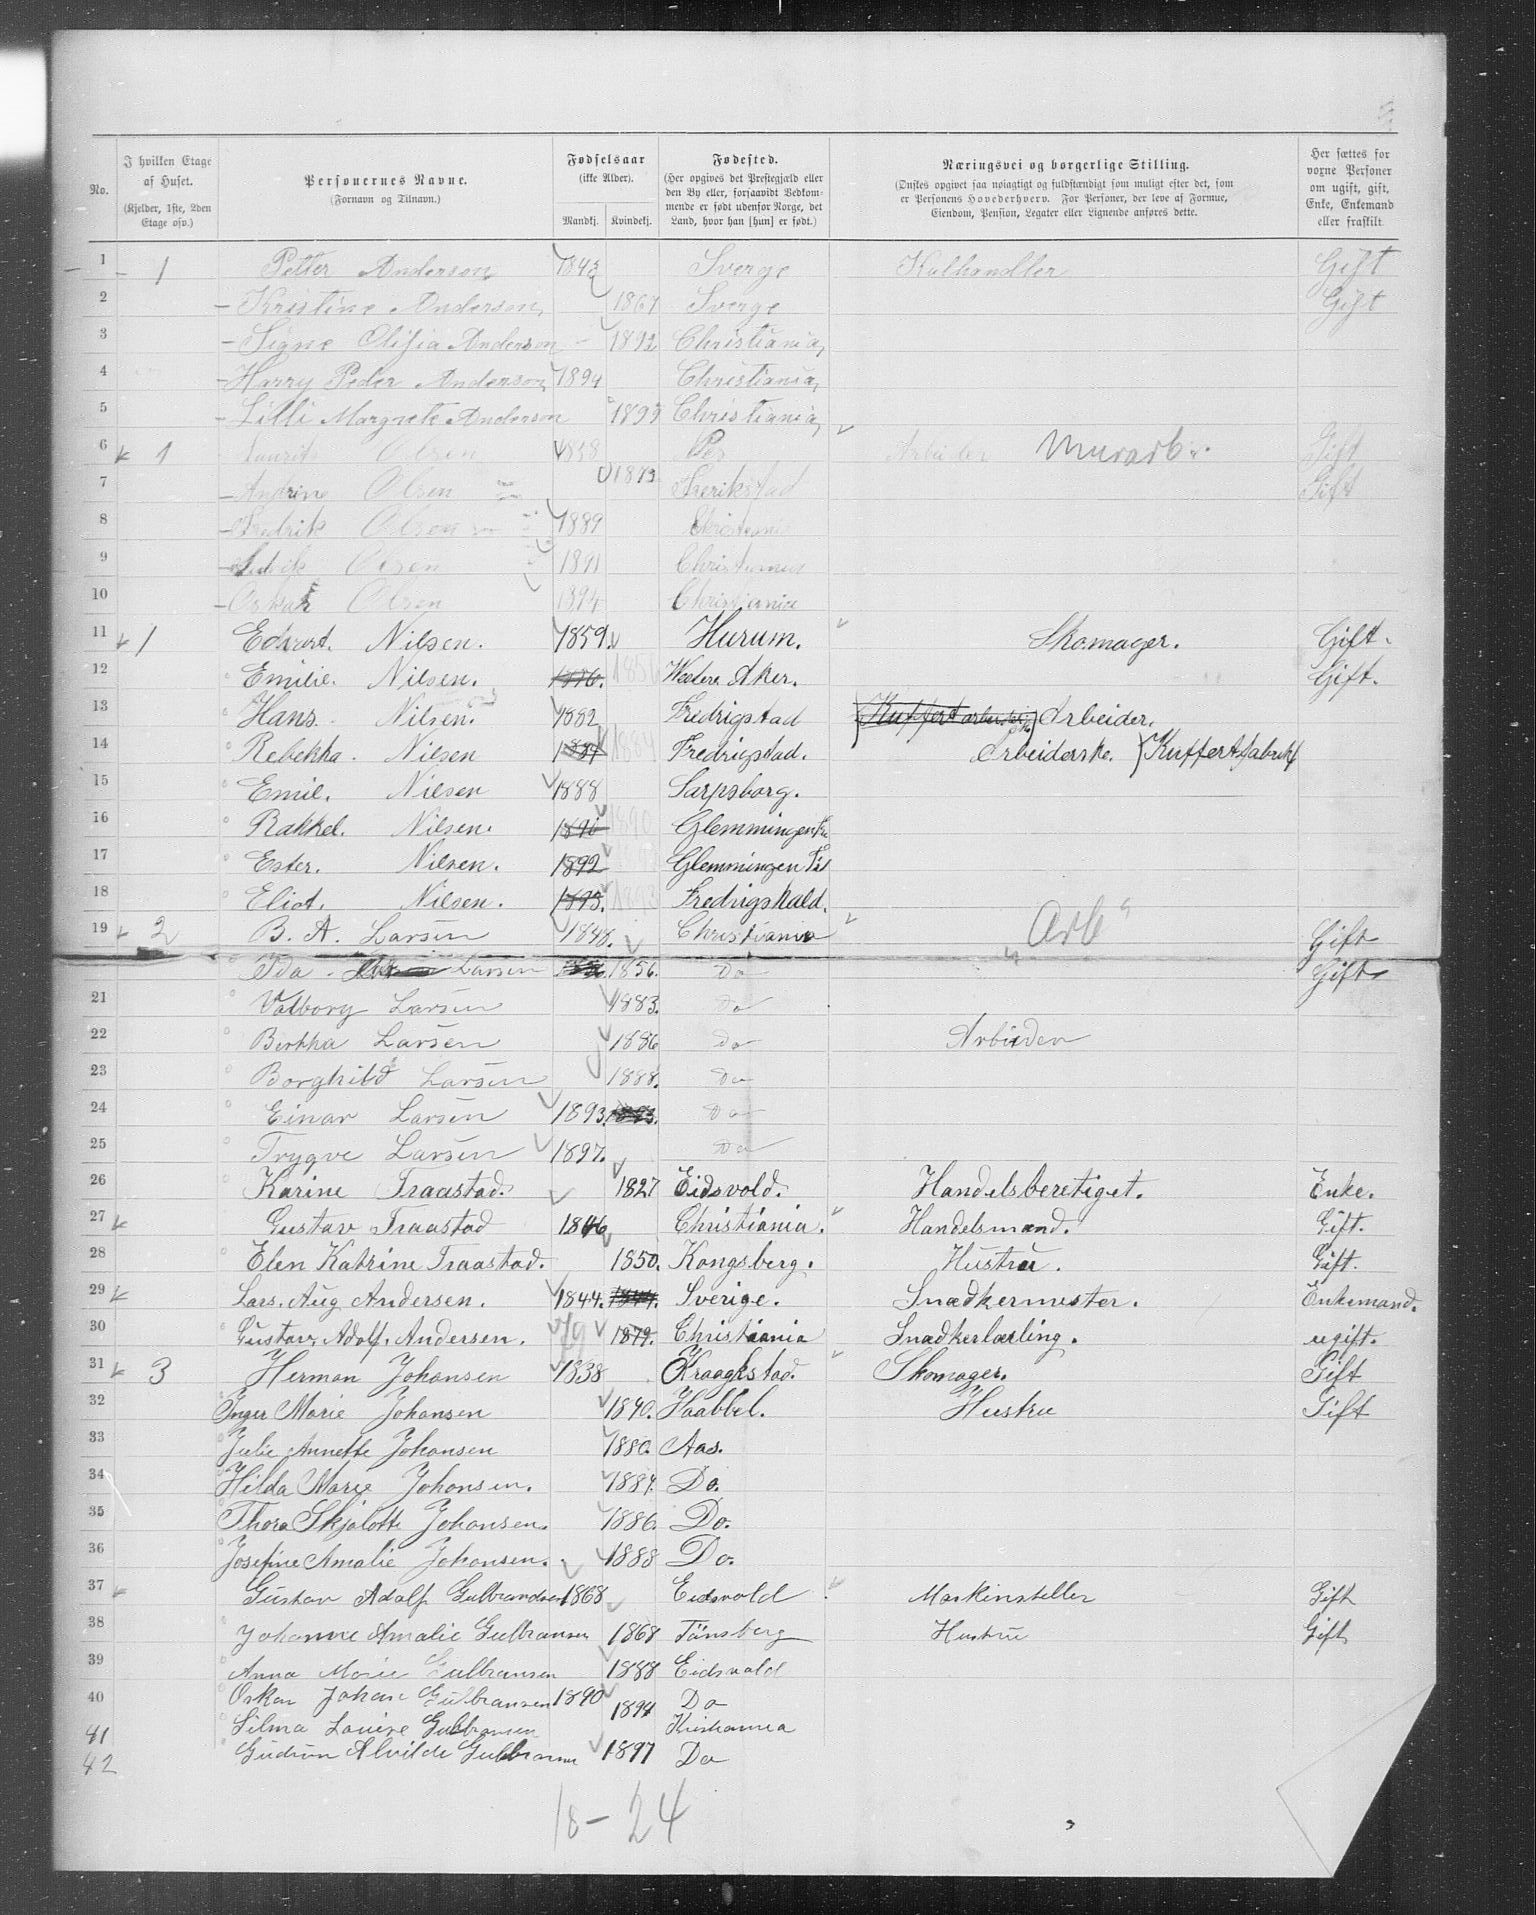 No. I hvilken Etage af Huset. (Kjelder, 1ste, 2den Etage osv.) Personernes Navne. (Fornavn og Tilnavn.) Fødselsaar (ikke Alder). Mandkj. Kvindekj. Fødested. (Her opgives det Prestegjæld eller den By eller, forsaavidt Vedkommende er født udenfor Norge, det Land, hvor han [hun] er født.) Næringsvei og borgerlige Stilling. (Ønskes opgivet saa nøiagtigt og fuldstændigt som muligt efter det, som er Personens Hovederhverv. For Personer, der leve af Formue, Eiendom, Pension, Legater eller Lignende anføres dette. Her sættes for vorne Personer om ugift, gift, Enke, Enkemand eller fraskilt.
1 1 Petter Anderson 1843 Sverge Kulhandler Gift
2 Kristine Anderson 1867 Sverge Gift
3 Signe Anderson 1892 Christiania
4 Harry Peder Anderson 1894 Christiania
5 Lilli Margrete Anderson 1899 Christiania
6 1 Laurits Olsen 1858 Arbeider Murarb. Gift
7 Andrine Olsen Frerikstad Gift
8 Fredrik Olsen 1889 Christiania
9 Olsen 1891 Christiania
10 Oskar Olsen 1894 Christiania
11 1 Edvart. Nilsen. 1859. Hurum. Skomager. Gift.
12 Emilie. Nilsen. Vestre Aker. Gift.
13 Hans. Nilsen. 1882 Fredrigstad Kuffertarbeider Arbeider.
14 Rebekka. Nilsen 1884 Fredrigstad. Arbeiderske. Kuffertfabrik
15 Emil. Nilsen 1888 Sarpsborg.
16 Rakkel. Nilsen. 1890 1890 Glemmingen
17 Ester. Nilsen. 1892 Glemmingen
18 Eliot. Nilsen. 1893 Fredrigshald.
19 2 B. A. Larsen 1848. Christiania Arb Gift
Ida Larsen 1856. Do Gift
21 Valborg Larsen 1883. Do
22 Berthha Larsen 1886 Do Arbeider
23 Borghild Larsen 1888. Do
24 Einar Larsen 1893. Do
25 Trygve Larsen 1897. Do
26 Karine Traastad. 1827 Eidsvold. Handelsberetiget. Enke.
27 Gustav Traastad 1846 Christiania. Handelsmand. Gift.
28 Elen Katrine Traastad. 1850. Kongsberg. Hustru. Gift.
29 Lars. Aug Andersen. 1844. 1844. Sverige. Snedkermester. Enkemand.
30 Gustav. Adolf. Andersen. 79 1879. Christiania Snedkerlærling. ugift.
31 3 Herman Johansen 1838 Kraagkstad. Skomager. Gift
32 Inger Marie Johansen 1840. Haabbel. Hustru Gift
33 Julie Annette Johansen 1880. Aas.
34 Hilda Marie Johansen. 1884. Do.
35 Thora Skjalotte Johansen. 1886. Do.
36 Josefine Amalie Johansen. 1888 Do.
37 Gustav Adolf Gulbrandsen 1868 Eidsvold Maskinsteller Gift
38 Johanne Amalie Gulbransen 1868 Tönsberg Hustru Gift
39 Anna Marie Gulbransen 1888 Eidsvold
40 Oskar Johan Gulbransen 1890 Do
41 Silma Louise Gulbransen 1894 Kristiania
42 Gudrun Alvilde Gulbransen 1897 Do
18-24